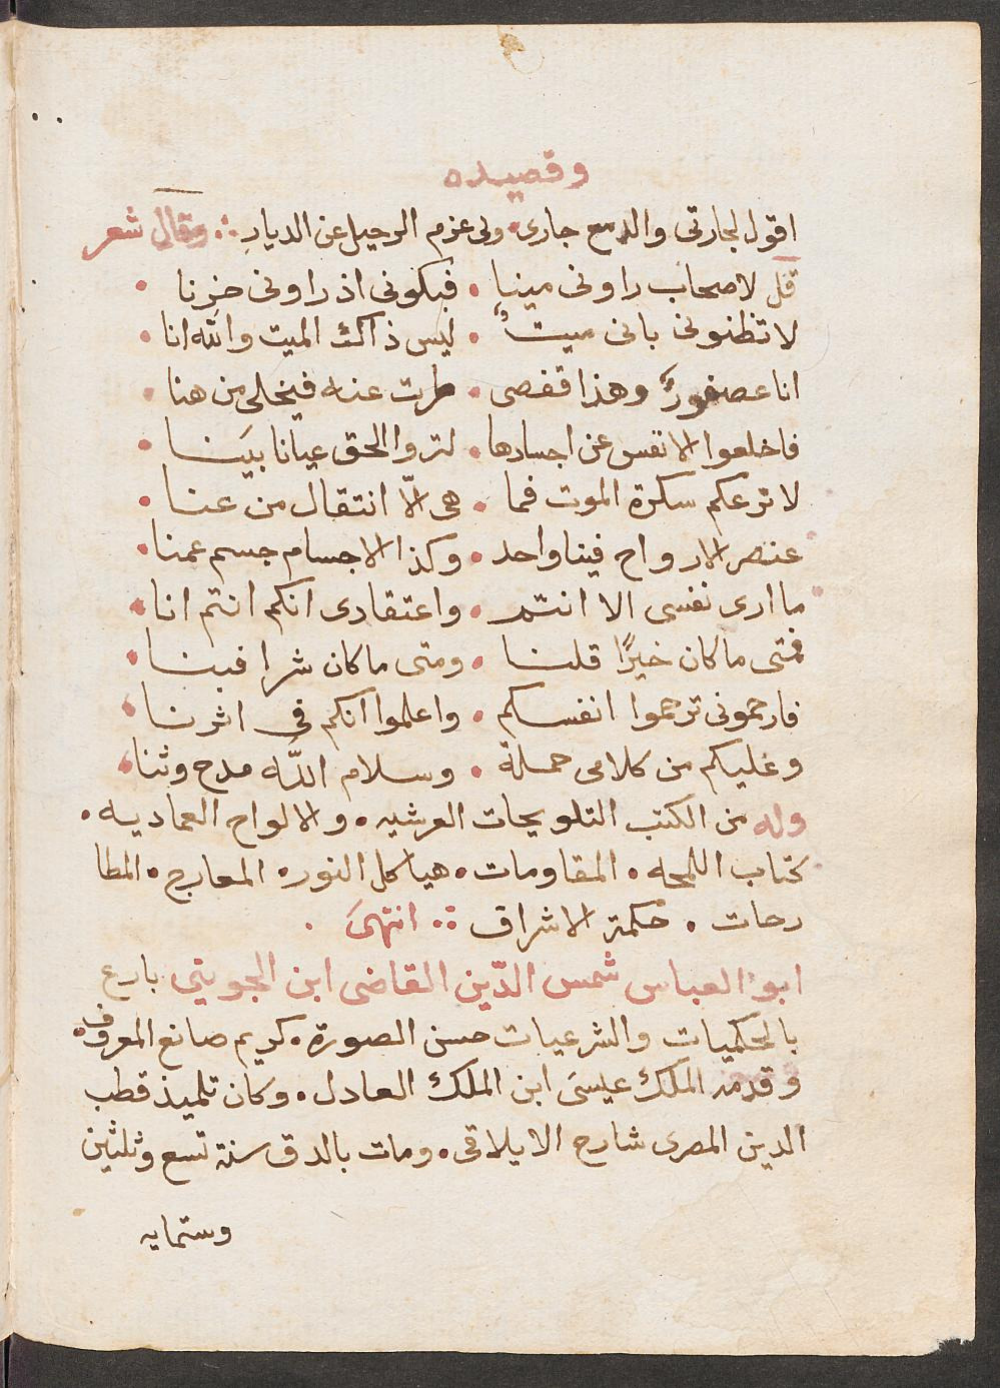 وقصيده
اقول لجارتى والدمع جارى ولى عزم الرحيل عن الديارِ ∴ وقال شعر
قل لاصحاب راونى ميتا • فبكونى اذ راونى حزنا •
لا تظنونى بانى ميتٌ • ليس ذاك الميت والله انا •
انا عصفورٌ وهذا قفصى • طرت عنه فيخلى من هنا •
فاخلعوا الانفس عن اجسادها • لتروا الحق عيانا بيَنا •
لا ترعكم سكرة الموت فما • هى الّا انتقال من عنا •
عنصر الارواح فينا واحد • وكذا الاجسام جسم عمنا •
ما ارى نفسى الا انتم • واعتقادى انكم انتم انا •
فمتى ما كان خيرًا قلنا • ومتى ما كان شرا فبنا •
فارحمونى ترحموا انفسكم • واعلموا انكم فى اثرنا •
وعليكم من كلامى جملة • وسلام الله مدح وثنا •
وله من الكتب التلويحات العرشيه • والالواح العماديه •
كتاب اللمحه • المقاومات • هياكل النور • المعارج • المطا
رحات • حكمة الاشراق ∴ انتهىَ •
ابو العباس شمس الدّين القاضى ابن الجوينى بارع
بالحكميات والشرعيات حسن الصورة • كريم صانع المعروف •
وقدمه الملك عيسىَ ابن الملك العادل • وكان تلميذ قطب
الدين المصرى شارح الايلاقى • ومات بالدق سنة تسع وثلثين
وستمايه